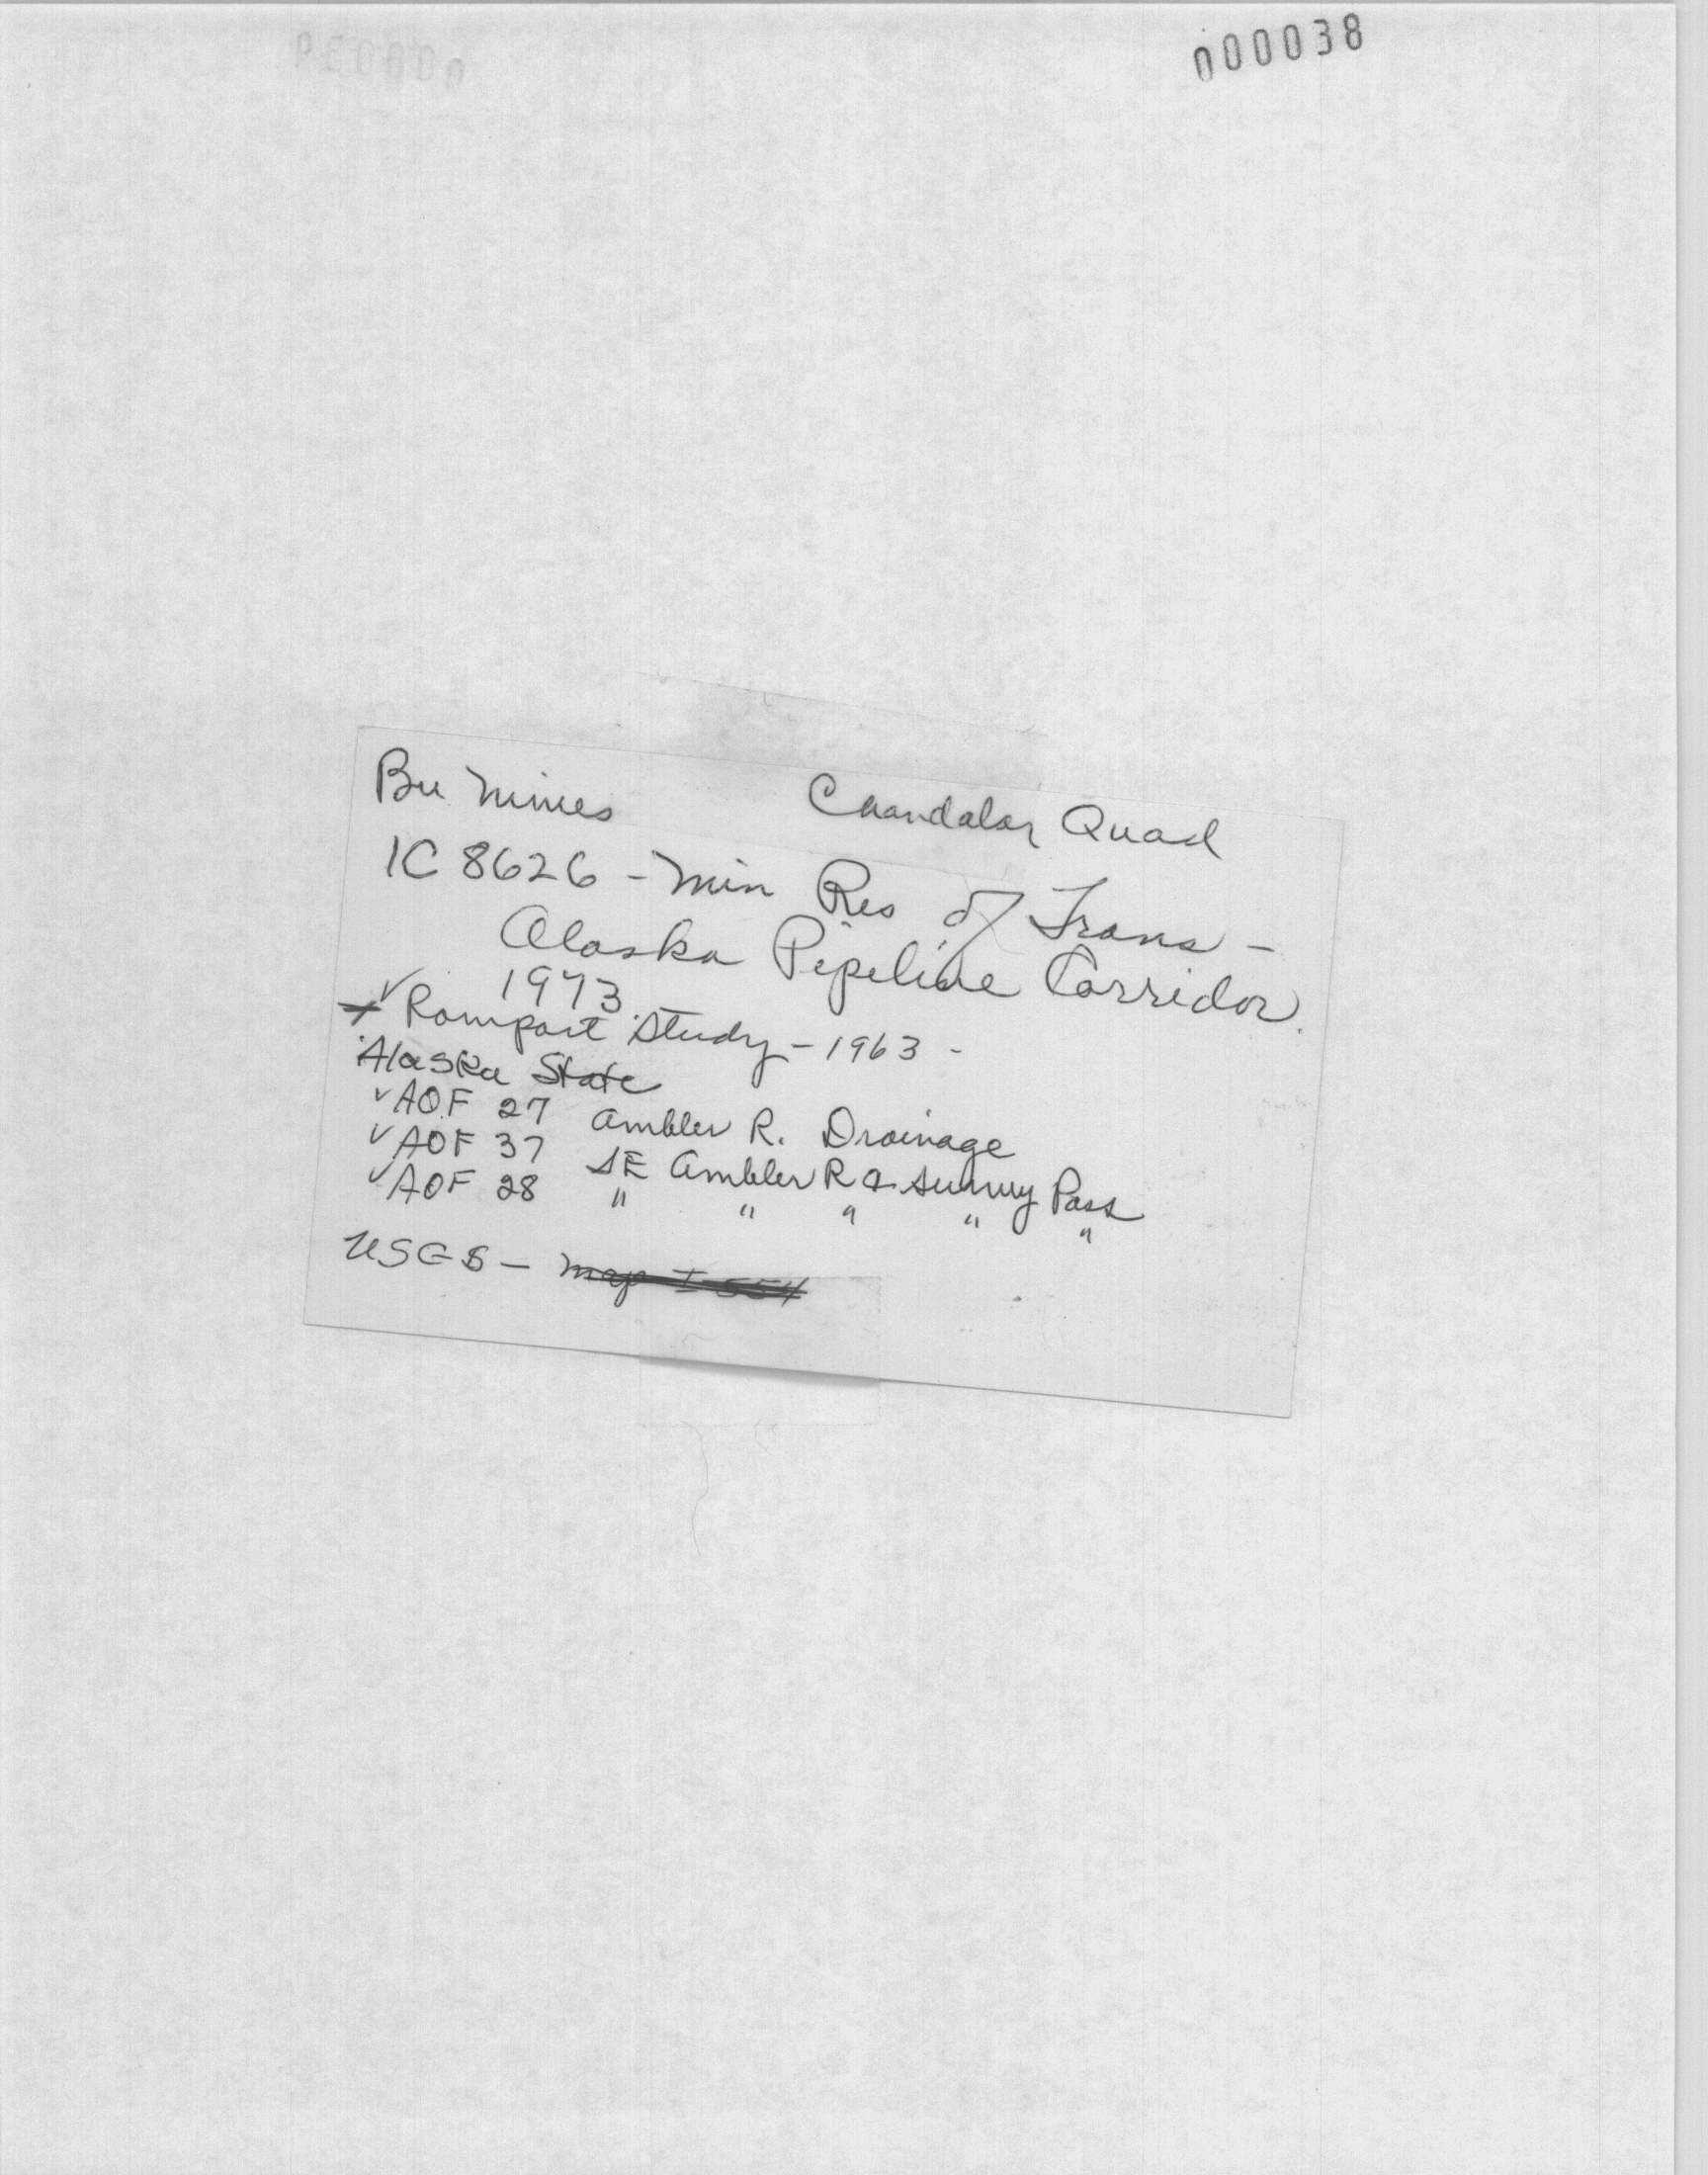 000038
Bu Mines Chandalar Quad
IC 8626 - Min Res of Trans -
Alaska Pipeline Corridor.
1973
✓ Rampart Study - 1963 -
Alaska State
✓ AOF 27 Ambler R. Drainage
✓ AOF 37 SE Ambler R & Sunny Pass
✓ AOF 28 " " " " "
USGS - Map I-554